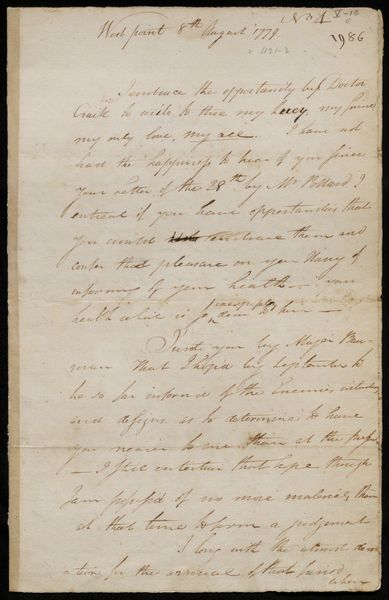 No 4 V-10
1986
West point 8th August 1779
I embrace the opportunity by Doctor
Craik to write to thee my Lucy, my friend
my only love, my all. I have not
had the happiness to hear of you since
your letter of the 28th by Mr Pollard I
entreat if you have opportunities that
you would embrace them and
confer that pleasure on your Harry of
informing of your health — your
health which is so dear to him —
I wrote you by Major Bau-
man that I hop'd by September to
be so far inform'd of the Enemies intentions
and designs as to determine to have
you nearer to me than at the present
— I still entertain that hope though
I am possess'd of no more materials than
at that time to form a judgement
I long with the utmost devo-
-tion for the arrival of that period
when